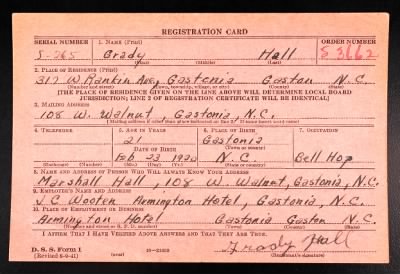 REGISTRATION CARD
SERIAL NUMBER 1. NAME (Print) ORDER NUMBER
S-265 Grady Hall S 3662
(First) (Middle) (Last)
2. PLACE OF RESIDENCE (Print)
317 W. Rankin Ave, Gastonia Gaston N.C.
(Number and street) (Town, township, village, or city) (County) (State)
[THE PLACE OF RESIDENCE GIVEN ON THE LINE ABOVE WILL DETERMINE LOCAL BOARD
JURISDICTION; LINE 2 OF REGISTRATION CERTIFICATE WILL BE IDENTICAL]
3. MAILING ADDRESS
108 W. Walnut, Gastonia, N.C.
[Mailing address if other than place indicated on line 2. If same insert word same]
4. TELEPHONE 5. AGE IN YEARS 6. PLACE OF BIRTH 7. OCCUPATION
21 Gastonia
DATE OF BIRTH (Town or county)
Feb 23 1920 N.C. Bell Hop
(Exchange) (Number) (Mo.) (Day) (Yr.) (State or country)
8. NAME AND ADDRESS OF PERSON WHO WILL ALWAYS KNOW YOUR ADDRESS
Marshall Hall, 108 W. Walnut, Gastonia, N.C.
9. EMPLOYER'S NAME AND ADDRESS
J. C. Wooten Armington Hotel, Gastonia, N.C.
10. PLACE OF EMPLOYMENT OR BUSINESS
Armington Hotel Gastonia Gaston N.C.
(Number and street or R. F. D. number) (Town) (County) (State)
I AFFIRM THAT I HAVE VERIFIED ABOVE ANSWERS AND THAT THEY ARE TRUE.
D. S. S. FORM 1
(Revised 6-9-41) Grady Hall
(Registrant's signature)